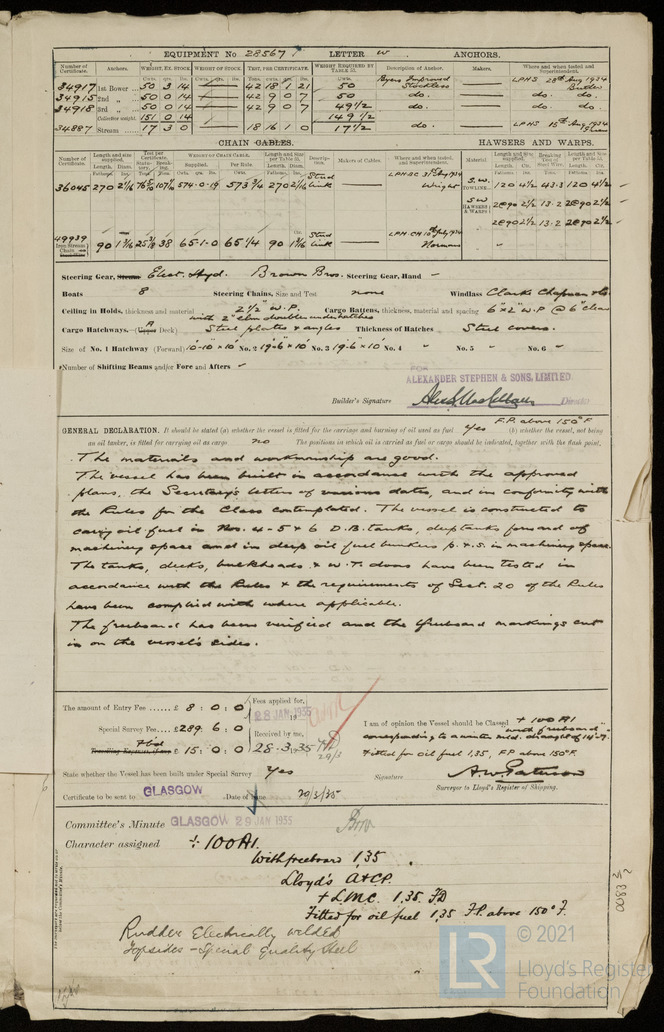 EQUIPMENT No 28567 LETTER w ANCHORS.
Number of Certificate. Anchors. WEIGHT, EX. STOCK. WEIGHT OF STOCK. TEST, PER CERTIFICATE. WEIGHT REQUIRED BY TABLE 53. Description of Anchor. Makers. Where and when tested and Superintendent.
34917 1st Bower ... 50 3 14 42 18 1 21 50 Byers Improved Stockless LPHS 28th Aug 1934
34915 2nd " ... 50 0 14 42 9 0 7 50 do. do. do.
34918 3rd " ... 50 0 14 42 9 0 7 49 1/2 do. do. do.
Collective weight 151 0 14 149 1/2
34887 Stream ... 17 3 0 18 16 1 0 17 1/2 do. LPHS 15th Aug 1934
CHAIN CABLES. HAWSERS AND WARPS.
36045 270 2 1/16 574-0-19 573 3/4 270 2 1/16 Stud Link Wright
S.W. TOWLINE 120 4 1/2 43.3 120 4 1/2
S.W. HAWSERS & WARPS 2@90 2 1/2 13.2 2@90 2 1/2
2@90 2 1/2 13.2 2@90 2 1/2
49939 90 1 3/16 38 65-1-0 65 1/4 90 1 3/16 Stud Link
Steering Gear, Steam Elect. Hyd. Brown Bros. Steering Gear, Hand -
Boats 8 Steering Chains, Size and Test none Windlass Clarke Chapman & Co.
Ceiling in Holds, thickness and material 2 1/2" W.P. with 2" elm doubles under hatches Cargo Battens, thickness, material and spacing 6" x 2" W.P @ 6" clear
Cargo Hatchways. (Upper Deck) A Steel plates & angles Thickness of Hatches Steel covers.
Size of No. 1 Hatchway (Forward) 10'-10" x 10' No. 2 19'-6" x 10' No. 3 19'-6 x 10' No. 4 " No. 5 " No. 6 "
Number of Shifting Beams and/or Fore and Afters -
FOR ALEXANDER STEPHEN & SONS, LIMITED
Builder's Signature Director
GENERAL DECLARATION. It should be stated (a) whether the vessel is fitted for the carriage and burning of oil used as fuel Yes F.P. above 150° F. (b) whether the vessel, not being
an oil tanker, is fitted for carrying oil as cargo no The positions in which oil is carried as fuel or cargo should be indicated, together with the flash point.
The materials and workmanship are good.
The vessel has been built in accordance with the approved
plans, the Secretary's letters of various dates, and in conformity with
the Rules for the Class contemplated. The vessel is constructed to
carry oil fuel in Nos. 4-5 & 6 D.B. tanks, deep tanks forward of
machinery space and in deep oil fuel bunkers p. & s. in machinery space.
The tanks, decks, bulkheads & W.T. doors have been tested in
accordance with the Rules & the requirements of Sect. 20 of the Rules
have been complied with where applicable.
The freeboard has been verified and the freeboard markings cut
in on the vessel's sides.
The amount of Entry Fee ...... £ 8 : 0 : 0 Fees applied for,
28 JAN 1935
Special Survey Fee... £289. 6 : 0 Received by me,
Fbd
Travelling Expenses, if any £ 15 : 0 : 0 28.3.1935
29/3
I am of opinion the Vessel should be Classed + 100 A1
"with freeboard"
corresponding to a
Fitted for oil fuel 1,35, F.P. above 150°F.
State whether the Vessel has been built under Special Survey Yes
Signature A.W. Paterson
Surveyor to Lloyd's Register of Shipping.
Certificate to be sent to GLASGOW Date of issue 29/3/35
Committee's Minute GLASGOW 29 JAN 1935
Character assigned + 100A1.
With freeboard 1,35
Lloyd's A&CP.
+ LMC. 1,35. FD
Fitted for oil fuel 1,35 F.P. above 150° F.
Rudder Electrically welded
Topsides - Special quality steel
0083 2/2
LR © 2021
Lloyd's Register
Foundation